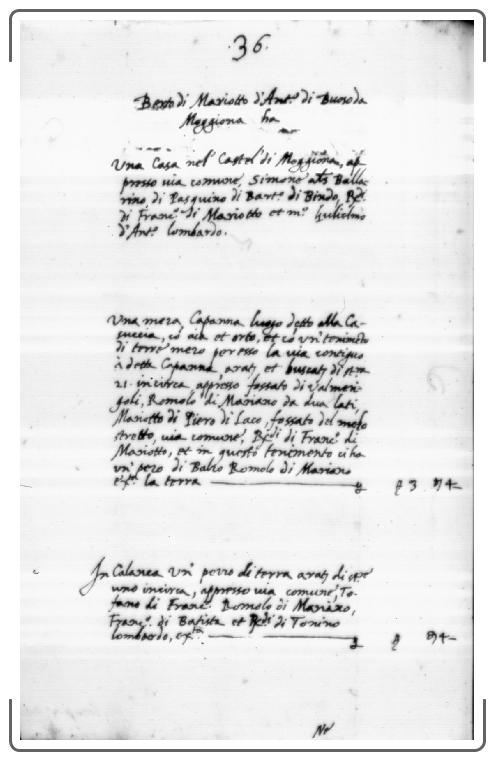 .36.
Berto di Mariotto d'Ant.º di Buoso da
Moggiona ha
Una Casa nel Castel di Moggiona, ap
presso via comune, Simone als Balla=
rino, di Pasquino di Bart.º di Bindo, Rdi
di Franc.º di Mariotto et m.º Gulielmo
d'Ant.º lombardo.
Una meza, Capanna luogo detto alla Ca-
succia, cō aia et orto, et cō un' tenimēto
di terre mezo per esso la via contiguo
à detta Capanna, arat. et buscat. di
21. incirca appresso fossato di Valmen=
goli, Romolo di Mariano da dua lati,
Mariotto di Piero di Laco, fossato del
stretto, via comune, Rdi di Franc.º di
Mariotto, et in questo tenimento ci ha
un' pezo di Balzo Romolo di Mariano
la terra 3 4–
In Calanca un' pezzo di terra arat. di
uno incirca, appresso via comune, To-
fano di Franc.º Romolo di Mariano,
Franc.º di Batista et Rdi di Tonino
lombardo, 4–